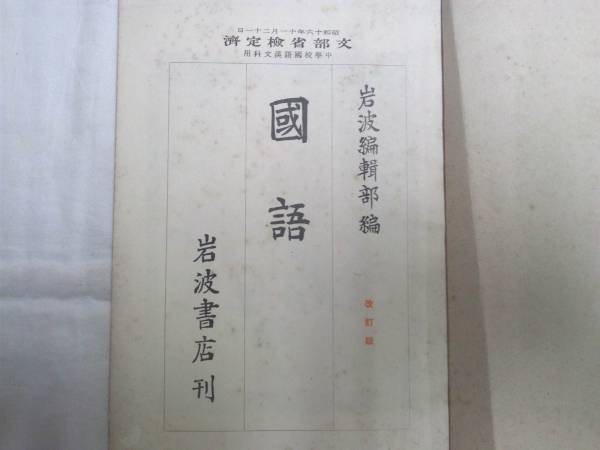 日一十二月一十年六十和昭
濟定檢省部文
用科文漢語國校學中
岩波編輯部編
改訂版
國語
岩波書店刊